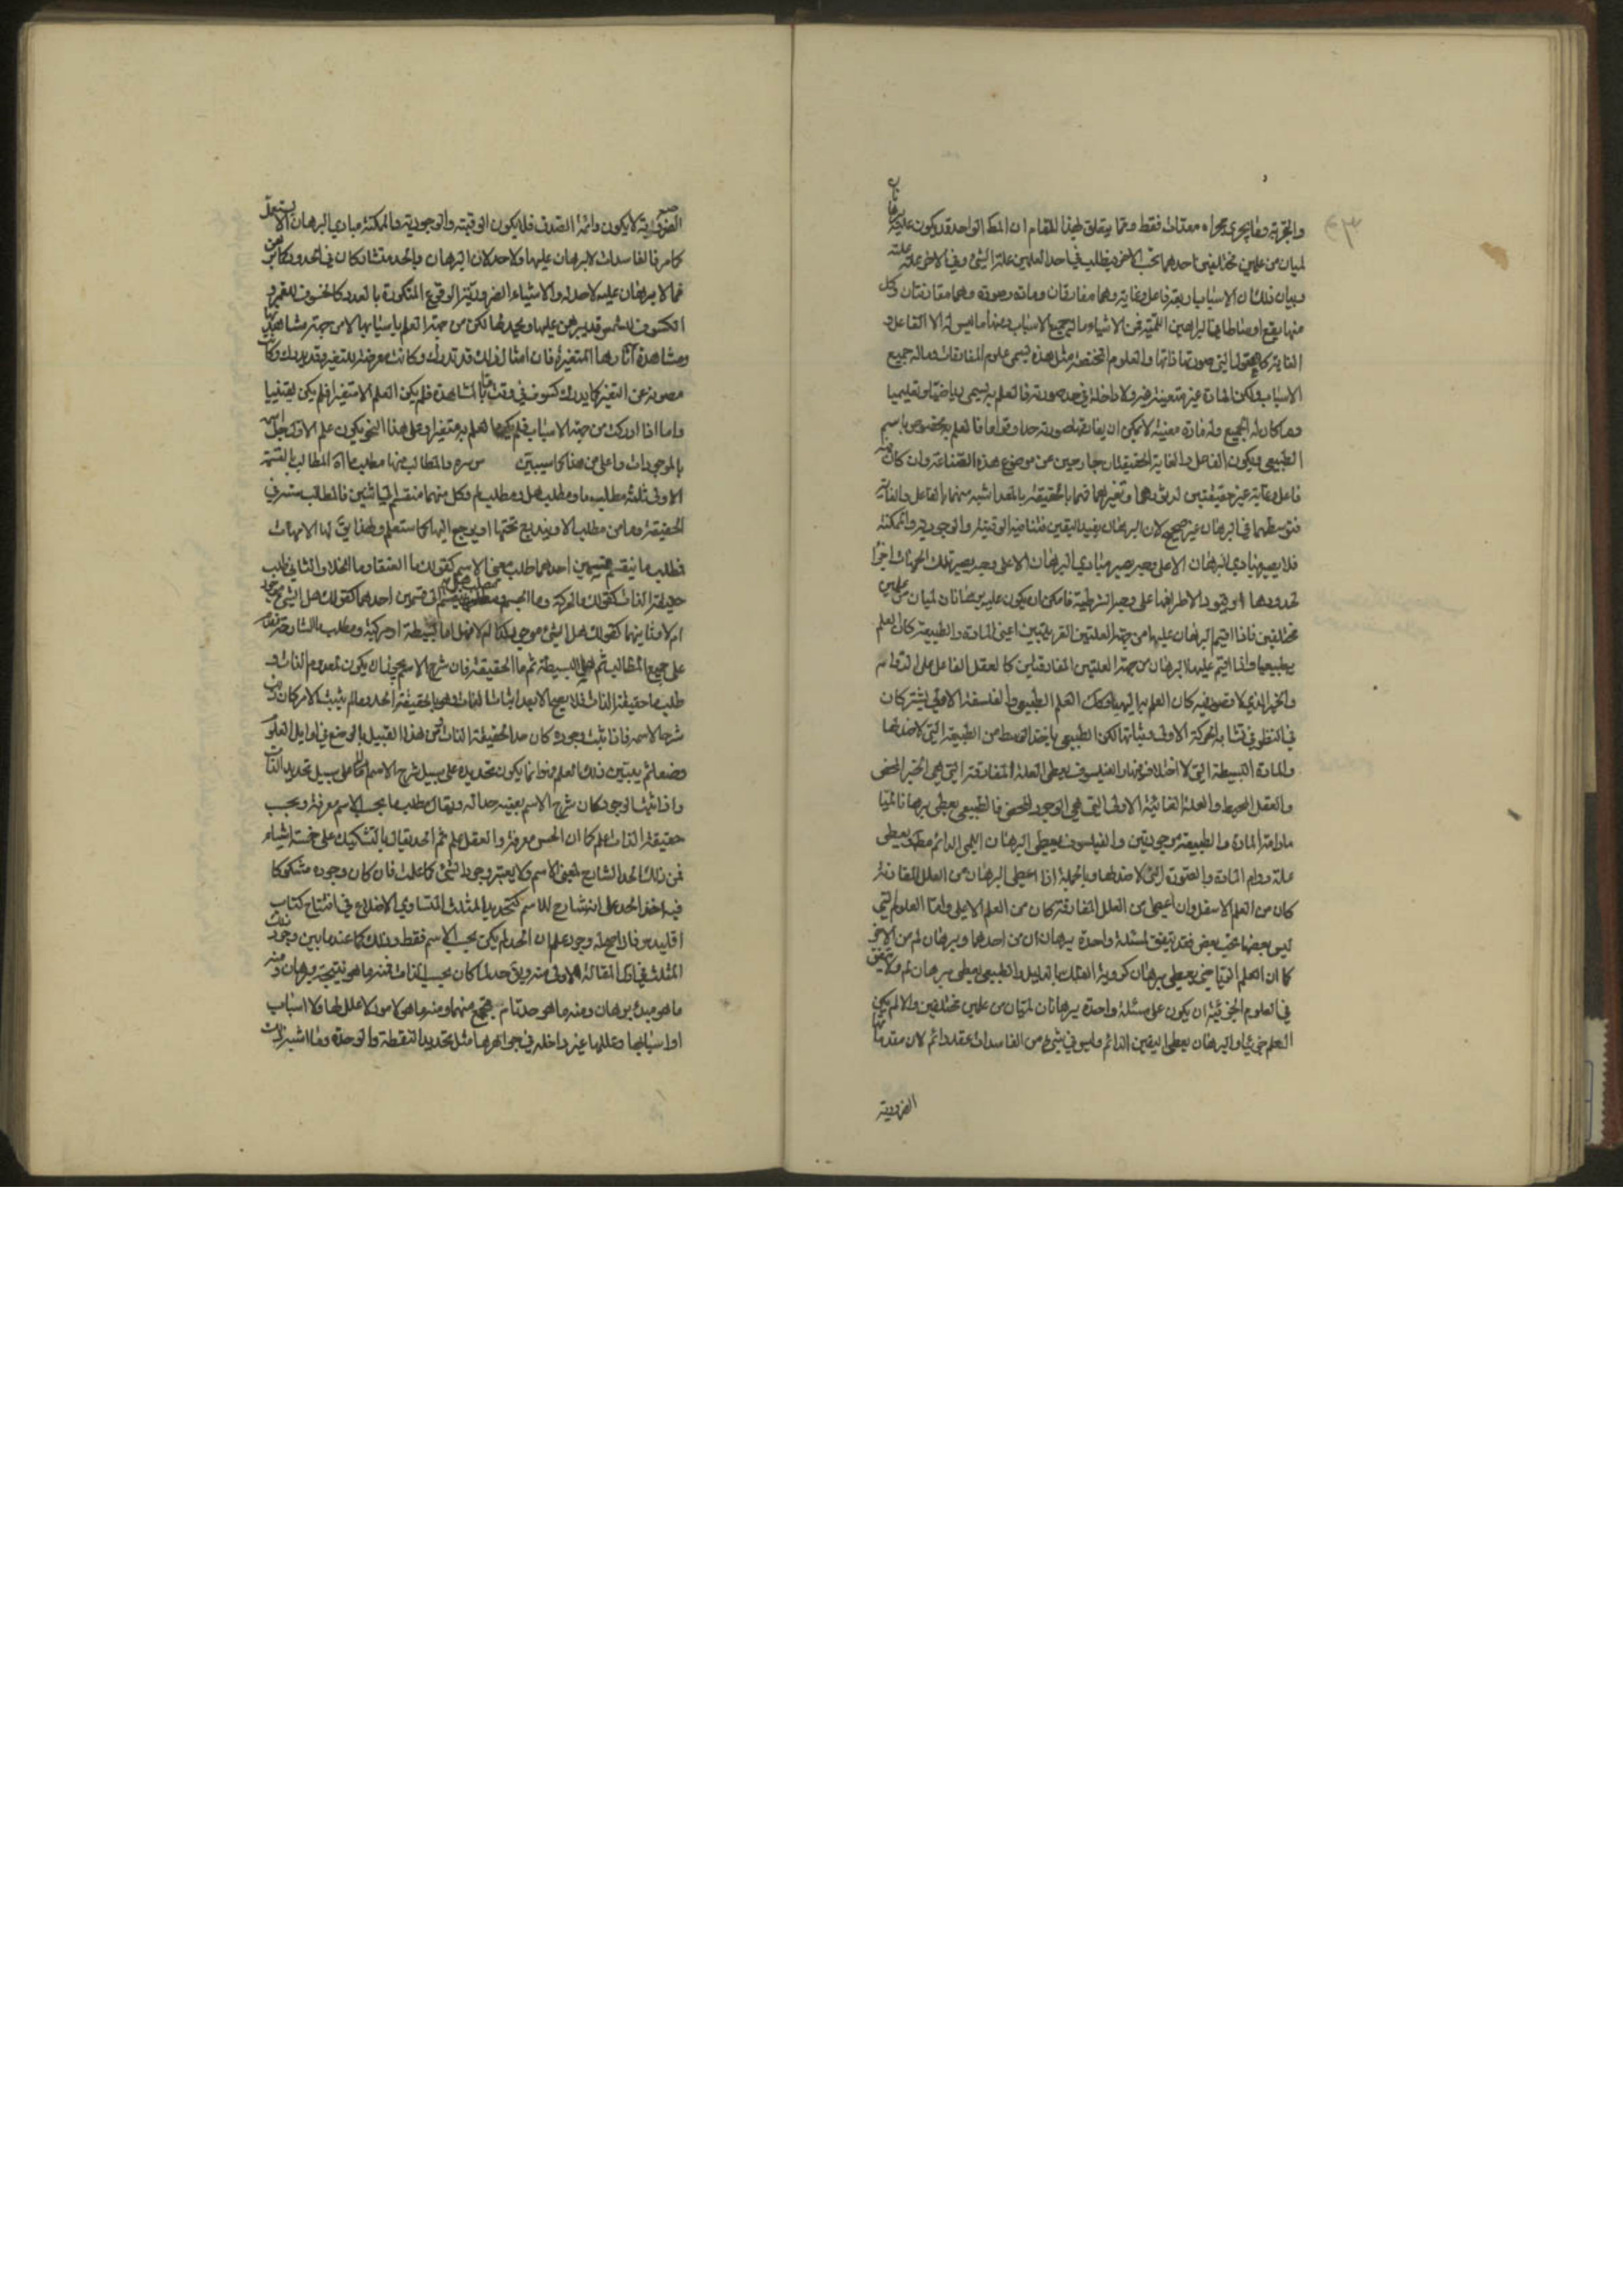 والتجربة وما يجري مجراه معدات فقط ومما يتعلق بهذا المقام ان المط الواحد قد يكون عليه برهانان
لميان من علمين مختلفين احدهما تحت الاخر فيطلب في احد العلمين علة الشئ وفي الاخر علة علته
وبيان ذلك ان الاسباب اربعة فاعل وغاية وهما مفارقان ومادة وصورة وهما مقارنتان وكل
منها يقع اوساطا في البراهين اللمية فمن الاشياء ما له جميع الاسباب ومنها ما ليس له الا الفاعل و
الغاية كالعقول التي صورتها ذاتها والعلوم المختصة بمثل هذه يسمى علوم المفارقات وما له جميع
الاسباب ولكن المادة غير متعينة له ولا داخلة في حد صورته فالعلم به يسمى رياضيا وتعليميا
وما كان له الجميع وله مادة معينة لا يمكن ان يفارقها صورته حدا وقواما فالعلم به مخصوص باسم
الطبيعي ويكون الفاعل والغاية الحقيقيتان خارجين عن موضوع هذه الصناعة وان كان فيه
فاعل وغاية غير حقيقيتين
فتوسطهما في البرهان غير صحيح لان البرهان يفيد اليقين فيناقض الوقتية والوجودية والممكنة
فلا يصير مبادي البرهان الا على وجه يصير مبادي البرهان الا على وجه يصير تلك الجهات اجزا
لحدودها او قيود الاطرافها على وجه الشرطية فامكن ان يكون عليه برهانان لميان من علمين
مختلفين فاذا اقيم البرهان عليها من جهة العلتين القريبتين اعني المادة والطبيعة كان العلم
طبيعيا واذا اقيم عليها البرهان من جهة العلتين المفارقتين كالعقل الفاعل على الدوام
والخير الذي لا قصور فيه كان العلم به الهيا وكك العلم الطبيعي والفلسفة الاولى يشتركان
في النظر في تشابه الحركة الاولى وثباتها لكن الطبيعي ياخذ الوسط من الطبيعة التي لا ضد لها
والمادة البسيطة التي لا اختلاف فيها والفيلسوف يعطي العلة المفارقة التي هي الخير المحض
والعقل المحيط والعلة الغائية الاولى التي هي الوجود المحض فالطبيعي يعطي برهانا لميا
مادامت المادة والطبيعة موجودتين والفيلسوف يعطي البرهان اللمي الدائم مطلقا ويعطي
علة دوام المادة والصورة التي لا ضد لها وبالجملة اذا اعطى البرهان من العلل المقارنة
كان من العلم الاسفل وان اعطى من العلل المفارقة كان من العلم الاعلى واما العلوم التي
ليس بعضها تحت بعض فقد يتفق لمسئلة واحدة برهان ان من احدهما وبرهان لم من الاخر
كما ان العلم الرياضي يعطي برهان كروية الفلك بالدليل والطبيعي يعطي برهان لم ولا يتفق
في العلوم الجزئية ان يكون على مسئلة واحدة برهانان لميان من علمين مختلفين والا لم يكن
العلم جزئيا والبرهان يعطي اليقين الدائم وليس في شئ من الفاسدات عقد دائم لان مقدماتها
الضرورية
الضرورية لا يكون دائمة الصدق فلا يكون الوقتية والوجودية والممكنة مبادي البرهان الا
كما مر فالفاسدات لا برهان عليها ولا حد لان البرهان والحد متشاركان في الحدود كما
فما لا برهان عليه لا حد له والاشياء الضرورية الوقوع المتكررة بالعدد كالخسوف للقمر و
الكسوف للشمس قد يبرهن عليها ويحد لها لكن من جهة العلم باسبابها لا من جهة مشاهدتها
ومشاهدة اثارها المتغيرة فان امثال ذلك قد تدرك وكانت معرضة للتغير وقد يدرك وكانت
مصونة عن التغير كما يدرك كسوف في وقت بالمشاهدة فلم يكن العلم الا متغيرا فلم يكن يقينيا
واما اذا ادركت من جهة الاسباب فلم يكن العلم به متغيرا وعلى هذا النحو يكون علم الاول جل اسمه
بالموجودات واعلى من هذا كما سيبين والمطالب منها مطلب القسمة
الاولى ثلثة مطلب ما ومطلب هل ومطلب لم وكل منها منقسم الى اثنين فالمطالب ستة في
الحقيقة وما من مطلب الا ويندرج تحتها او يرجع اليها كما ستعلم ولهذا يق لها الامهات
فطلب ما ينقسم قسمين احدهما طلب معنى الاسم كقولك ما العنقا وما الخلاء والثاني طلب
حقيقة الذات كقولك ما الحركة وما الجسم ومطلب هل ينقسم الى قسمين احدهما كقولك هل الشئ موجود
ام لا وثانيهما كقولك هل الشئ موجود كذا ام لا فهل اما بسيطة او مركبة ومطلب ما الشارحة تقدم
على جميع المطالب ثم هل البسيطة ثم ما الحقيقة فان شرح الاسم يجوز ان يكون لمعدوم الذات و
طلب ما حقيقة الذات فلا يصح الا بعد اثبات الذات فهو بالحقيقة الحد وما لم يثبت الامر كان
شرحا للاسم فاذا ثبت وجوده كان حدا لحقيقة الذات فمن هذا القبيل ما يوضع في اوايل العلوم
وضعا لم يبين ذلك العلم وانما يكون تحديده على سبيل شرح الاسم لا على سبيل تحديد الذات
واذا ثبت الوجود كان شرح الاسم بعينه حدا له ويقال مطلب ما بحسب الاسم معرفة وبحسب
حقيقة الذات علم كما ان الحس معرفة والعقل علم ثم الحد يقال بالتشكيك على خمسة اشياء
فمن ذلك الحد الشارح لمعنى الاسم ولا يعتبر وجود الشئ كما علمت فان كان وجوده مشكوكا
فيه اخذ الحد على انه شارح للاسم كتحديد المثلث المتساوي الاضلاع في افتتاح كتاب
اقليدس فاذا صح له وجود علم ان الحد لم يكن بحسب الاسم فقط وذلك كما عند ما بين وجود ذلك
المثلث في المقالة الاولى منه ويق حد لما كان بحسب الذات فمنه ما هو نتيجة برهان ومنه
ما هو مبدء برهان ومنه ما هو حد تام مجتمع منهما ومنه ما هو لامور لا علل لها ولا اسباب
او اسبابها وعللها غير داخلة في جواهرها مثل تحديد النقطة والوحدة وما اشبه ذلك